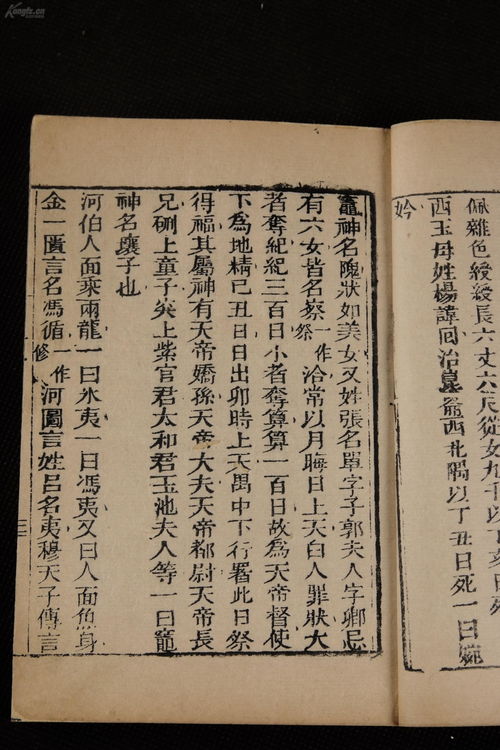 佩雜色綬綬長六丈六尺從女九千以丁亥日死
西王母姓楊諱回治崑崙西北隅以丁丑日死一曰婉
妗
竈神名隗狀如美女又姓張名單字子郭夫人字卿忌
有六女皆名察一作祭洽常以月晦日上天白人罪狀大
者奪紀紀三百日小者奪算算一百日故爲天帝督使
下爲地精己丑日日出卯時上天禺中下行署此日祭
得福其屬神有天帝嬌孫天帝大夫天帝都尉天帝長
兄硎上童子突上紫官君太和君玉池夫人等一曰竈
神名壤子也
河伯人面乘兩龍一曰氷夷一曰馮夷又曰人面魚身
金一匱言名馮循一作修河圖言姓呂名夷穆天子傳言
三
Kongfz.cn